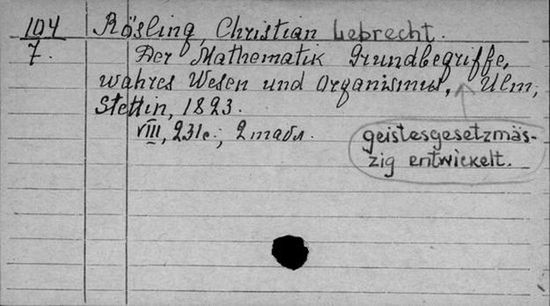 104 Rösling, Christian Lebrecht.
7. Der Mathematik Grundbegriffe,
wahres Wesen und Organismus, Ulm,
Stettin, 1823.
VIII, 231c., 2 табл.
geistesgesetzmäs-
zig entwickelt.